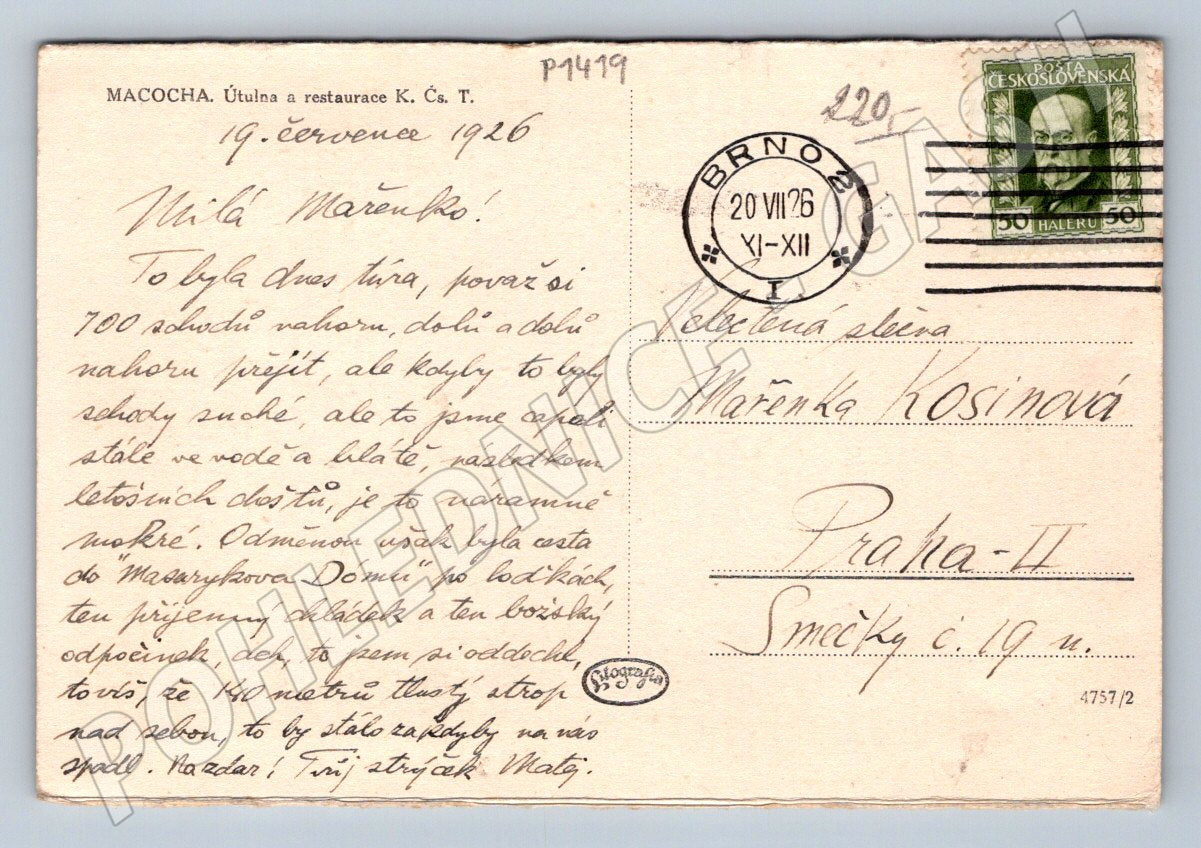 P1419
MACOCHA. Útulna a restaurace K. Čs. T.
19. července 1926
Milá Mařenko!
To byla dnes túra, považ si
700 schodů nahoru, dolů a dolů
nahoru přejít, ale kdyby to byly
schody suché, ale to jsme capali
stále ve vodě a blátě, následkem
letošních dešťů, je to náramně
mokré. Odměnou však byla cesta
do "Masarykova Domu" po loďkách,
ten příjemný chládek a ten božský
odpočinek, ach, to jsem si oddechl,
to víš, že 140 metrů tlustý strop
nad sebou, to by stálo za kdyby na nás
spadl. Nazdar! Tvůj strýček Matěj.
220,-
POŠTA
ČESKOSLOVENSKÁ
50 HALÉŘŮ 50
BRNO 2
20 VII 26
XI-XII
I.
Velectěná slečna
Mařenka Kosinová
Praha-II
Smečky č. 19 n.
Fotografia
4757/2
POHLEDNICE GASH